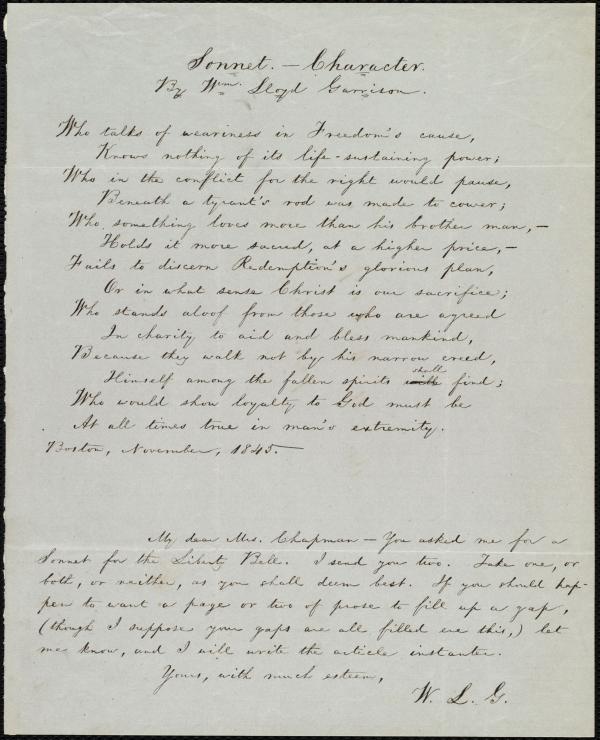 Sonnet. — Character.
By Wm. Lloyd Garrison.
Who talks of weariness in Freedom's cause,
Knows nothing of its life-sustaining power;
Who in the conflict for the right would pause,
Beneath a tyrant's rod was made to cower;
Who something loves more than his brother man,—
Holds it more sacred, at a higher price,—
Fails to discern Redemption's glorious plan,
Or in what sense Christ is our sacrifice;
Who stands aloof from those who are agreed
In charity to aid and bless mankind,
Because they walk not by his narrow creed,
Himself among the fallen spirits shall find;
Who would show loyalty to God must be
At all times true in man's extremity.
Boston, November, 1845.—
My dear Mrs. Chapman — You asked me for a
Sonnet for the Liberty Bell. I send you two. Take one, or
both, or neither, as you shall deem best. If you should hap-
pen to want a page or two of prose to fill up a gap,
(though I suppose your gaps are all filled ere this,) let
me know, and I will write the article instanter.
Yours, with much esteem,
W. L. G.